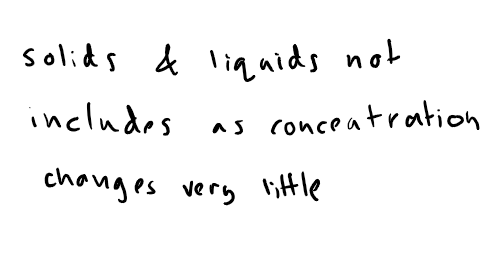 solids & liquids not
includes as concentration
changes very little